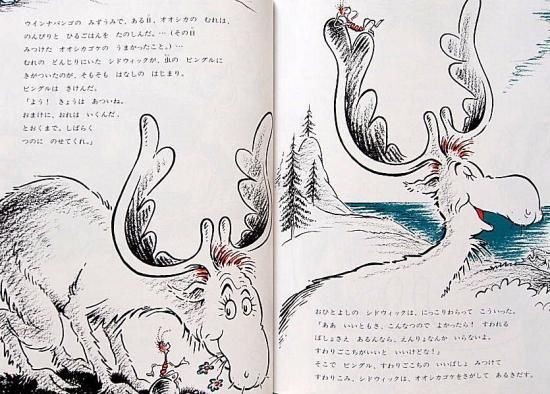 ウインナバンゴの みずうみで、ある日、オオシカの むれは、
のんびりと ひるごはんを たのしんだ。…(その日
みつけた オオシカゴケの うまかったこと。)…
むれの どんじりにいた シドウィックが、虫の ビングルに
きがついたのが、そもそも はなしの はじまり。
ビングルは さけんだ。
「よう! きょうは あついね。
おまけに、おれは いくんだ、
とおくまで。しばらく
つのに のせてくれ。」
おひとよしの シドウィックは、にっこりわらって こういった。
「ああ いいともさ、こんなつので よかったら! すわれる
ばしょさえ あるんなら、えんりょなんか いらないよ。
すわりごこちが いいと いいけどな!」
そこで ビングル、すわりごこちの いいばしょ みつけて
すわりこみ、シドウィックは、オオシカゴケをさがして あるきだす。